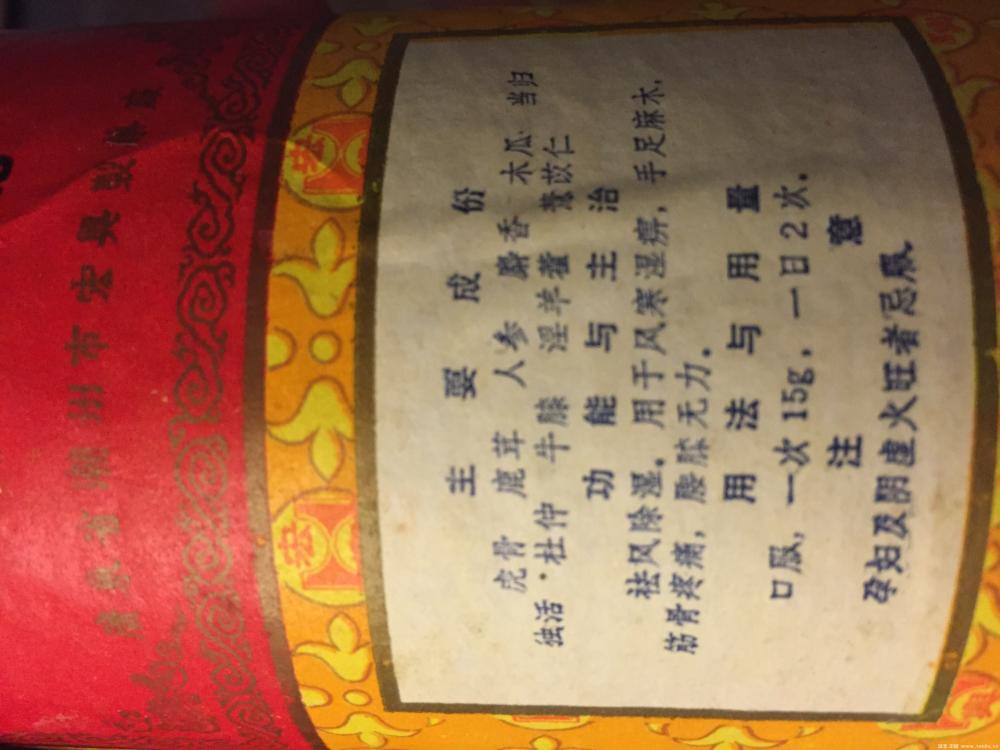 主要成份
虎骨 鹿茸 人参 麝香 木瓜 当归
独活·杜仲 牛膝 淫羊藿 薏苡仁
功能与主治
祛风除湿。用于风寒湿痹，手足麻木，
筋骨疼痛，腰膝无力。
用法与用量
口服，一次15g，一日2次。
注意
孕妇及阴虚火旺者忌服
广东省潮州市宏兴制药厂
宏
宏